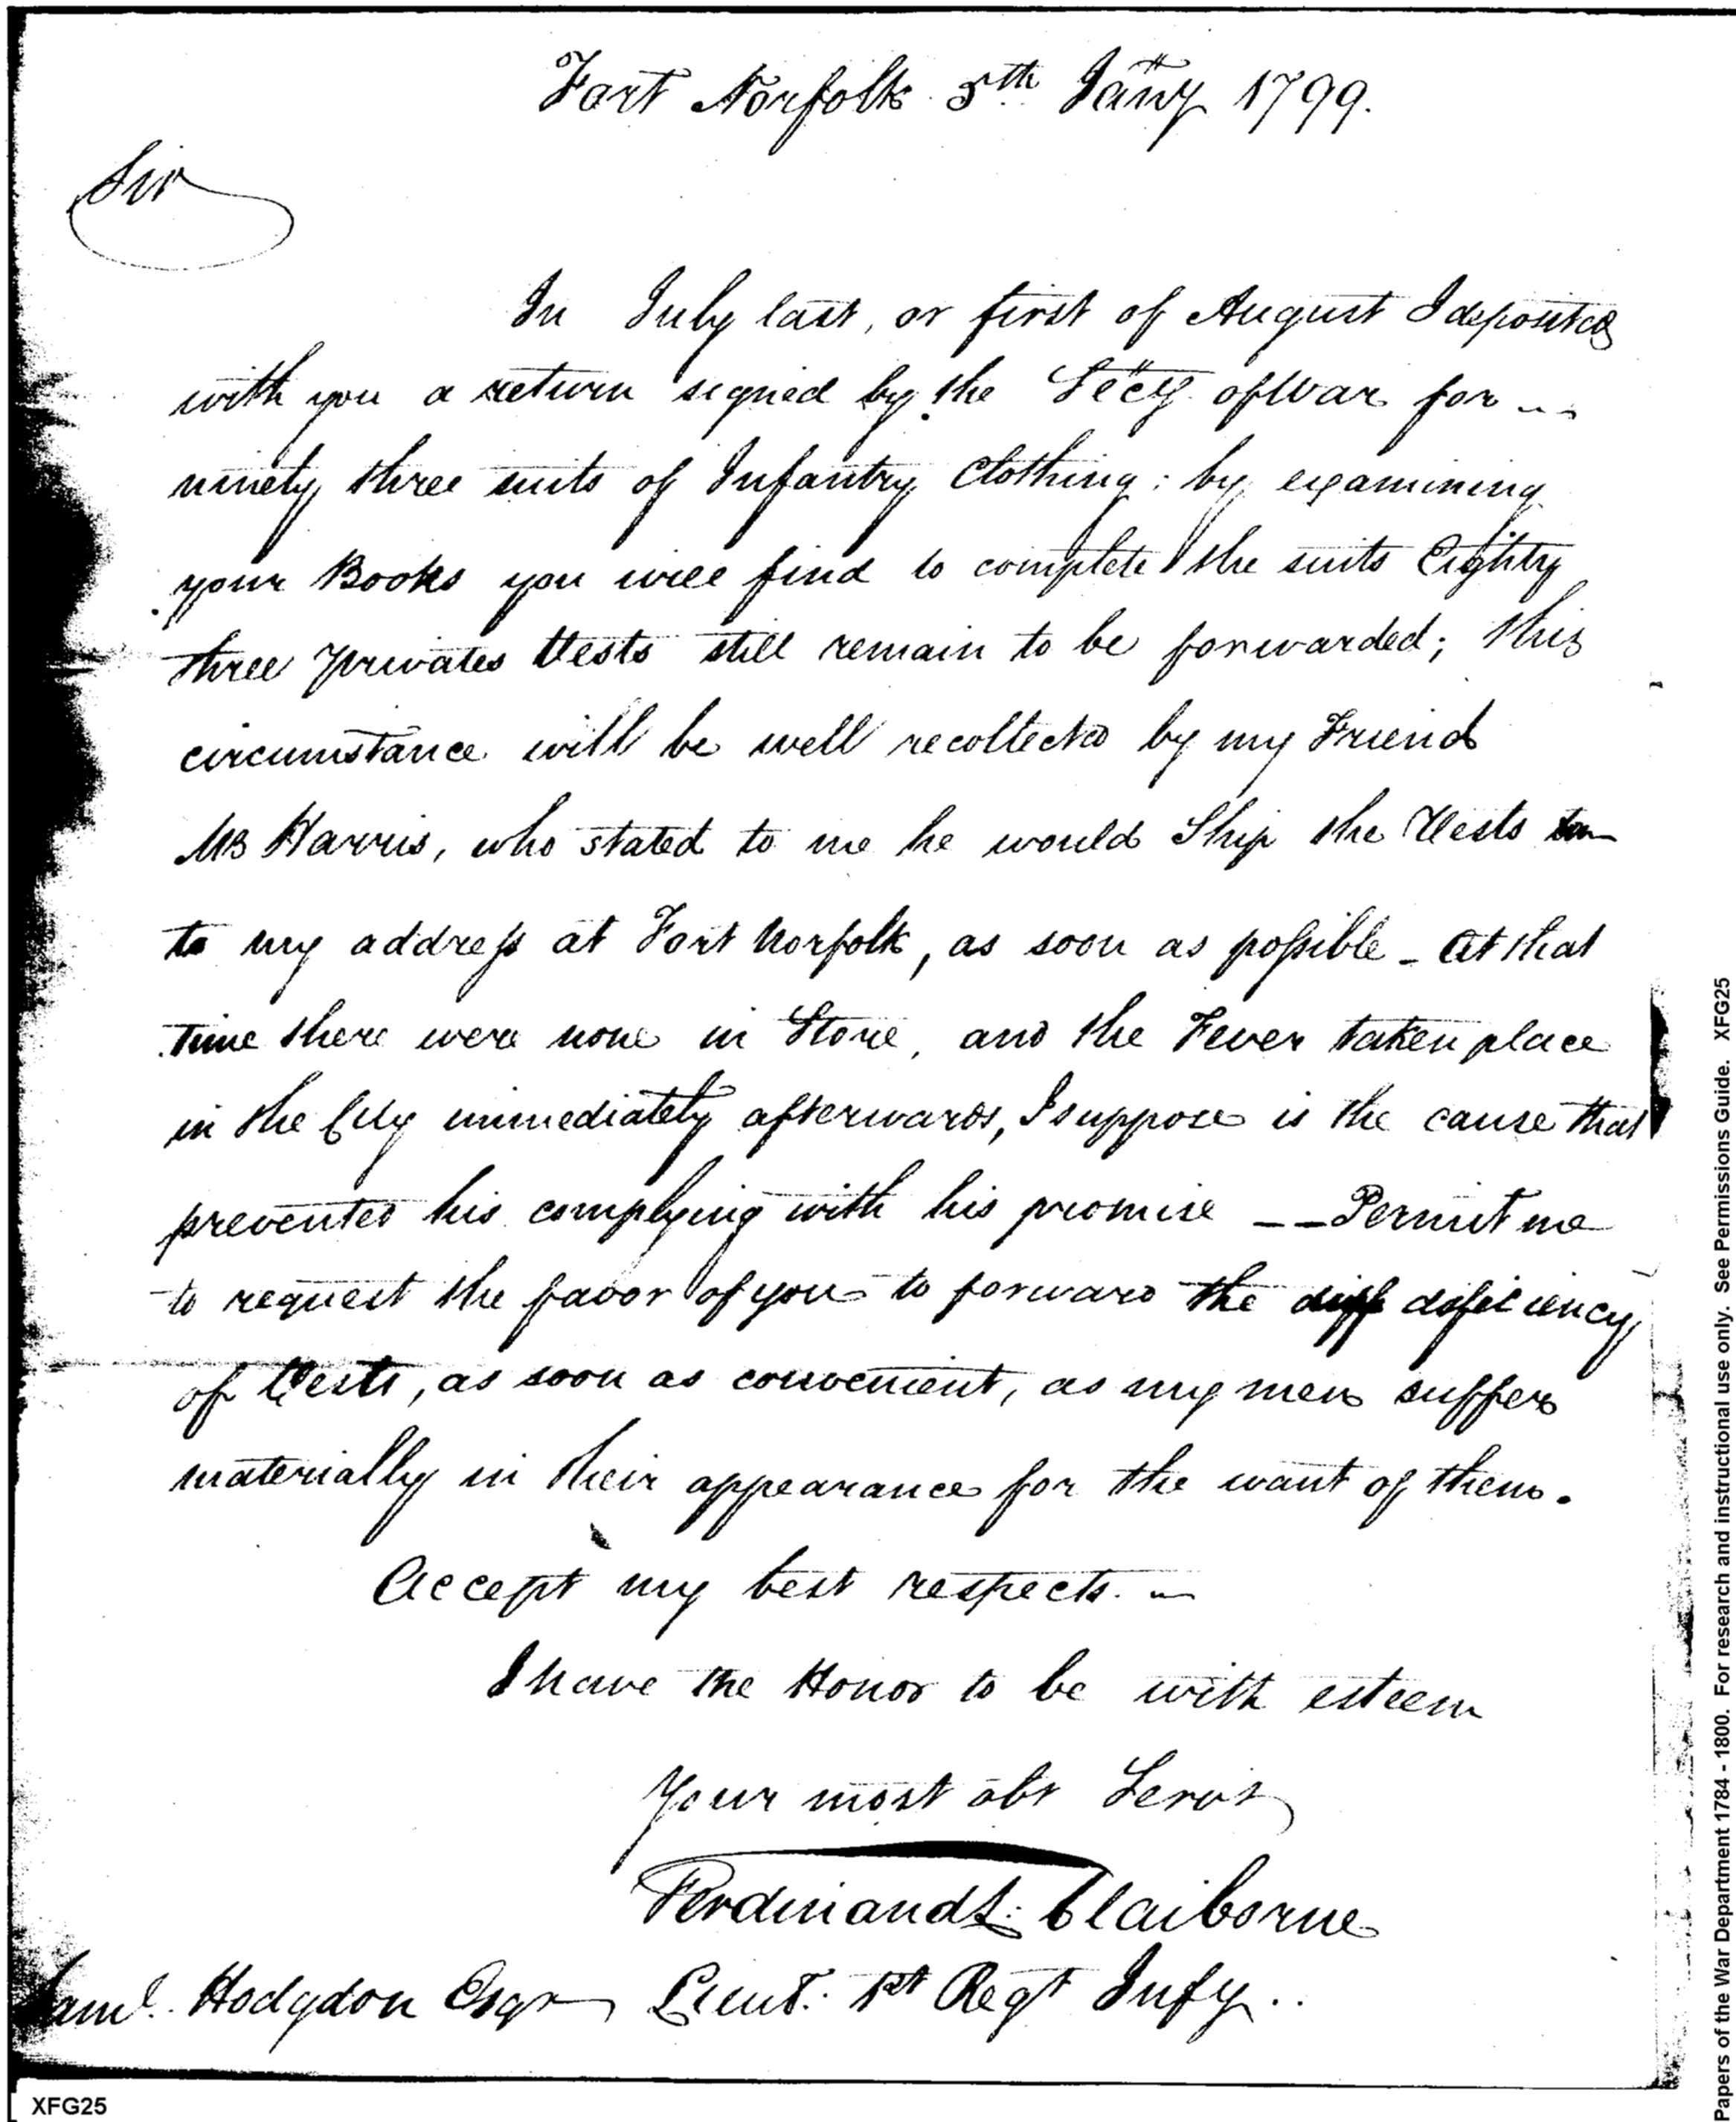 Fort Norfolk 5th Jany 1799.
Sir
In July last, or first of August I deposited
with you a return signed by the Secy of War for
ninety three suits of Infantry Clothing; by examining
your Books you will find to complete the suits Eighty
three privates Vests still remain to be forwarded; this
circumstance will be well recollected by my Friend
Mr Harris, who stated to me he would Ship the Vests
to my address at Fort Norfolk, as soon as possible _ At that
time there were none in Store, and the Fever taken place
in the City immediately afterwards, I suppose is the cause that
prevented his complying with his promise __ Permit me
to request the favor of you to forward the diff deficiency
of Vests, as soon as convenient, as my men suffer
materially in their appearance for the want of them.
Accept my best respects.
I have the Honor to be with esteem
Your most obt Servt
Ferdinand L: Claiborne
Saml. Hodgdon Esqr Lieut. 1st Regt Infy..
XFG25
Papers of the War Department 1784 - 1800. For research and instructional use only. See Permissions Guide. XFG25